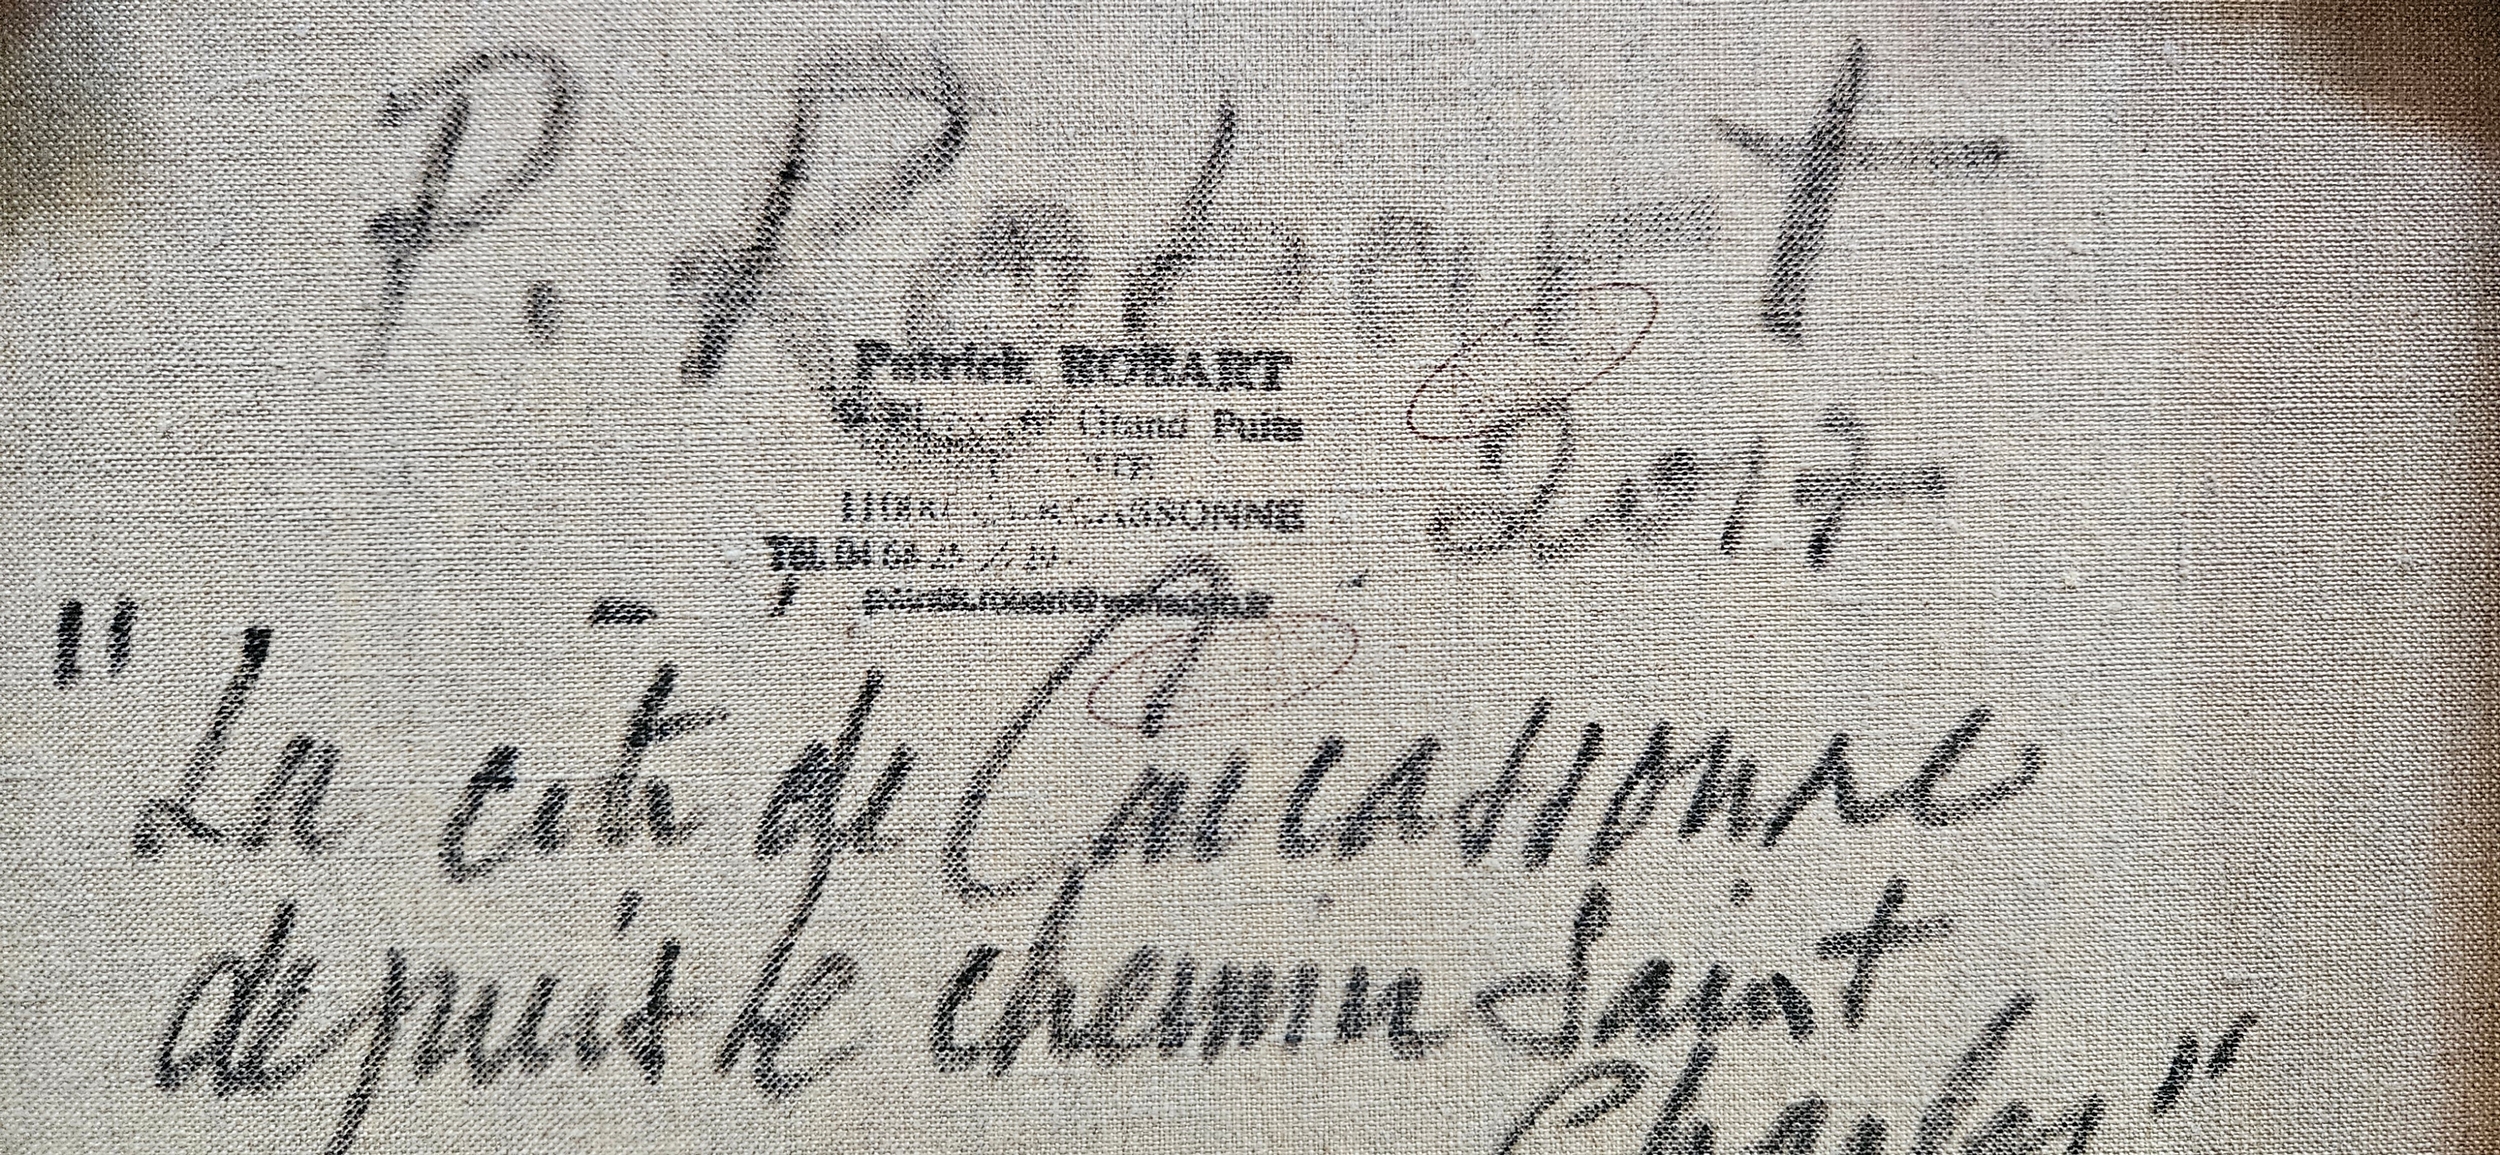 P. Robart
Patrick ROBART
Grand Puits
CARCASSONNE
Tél. 04 68
2017
"La cité de Carcassonne
depuis le chemin Saint
Charles"